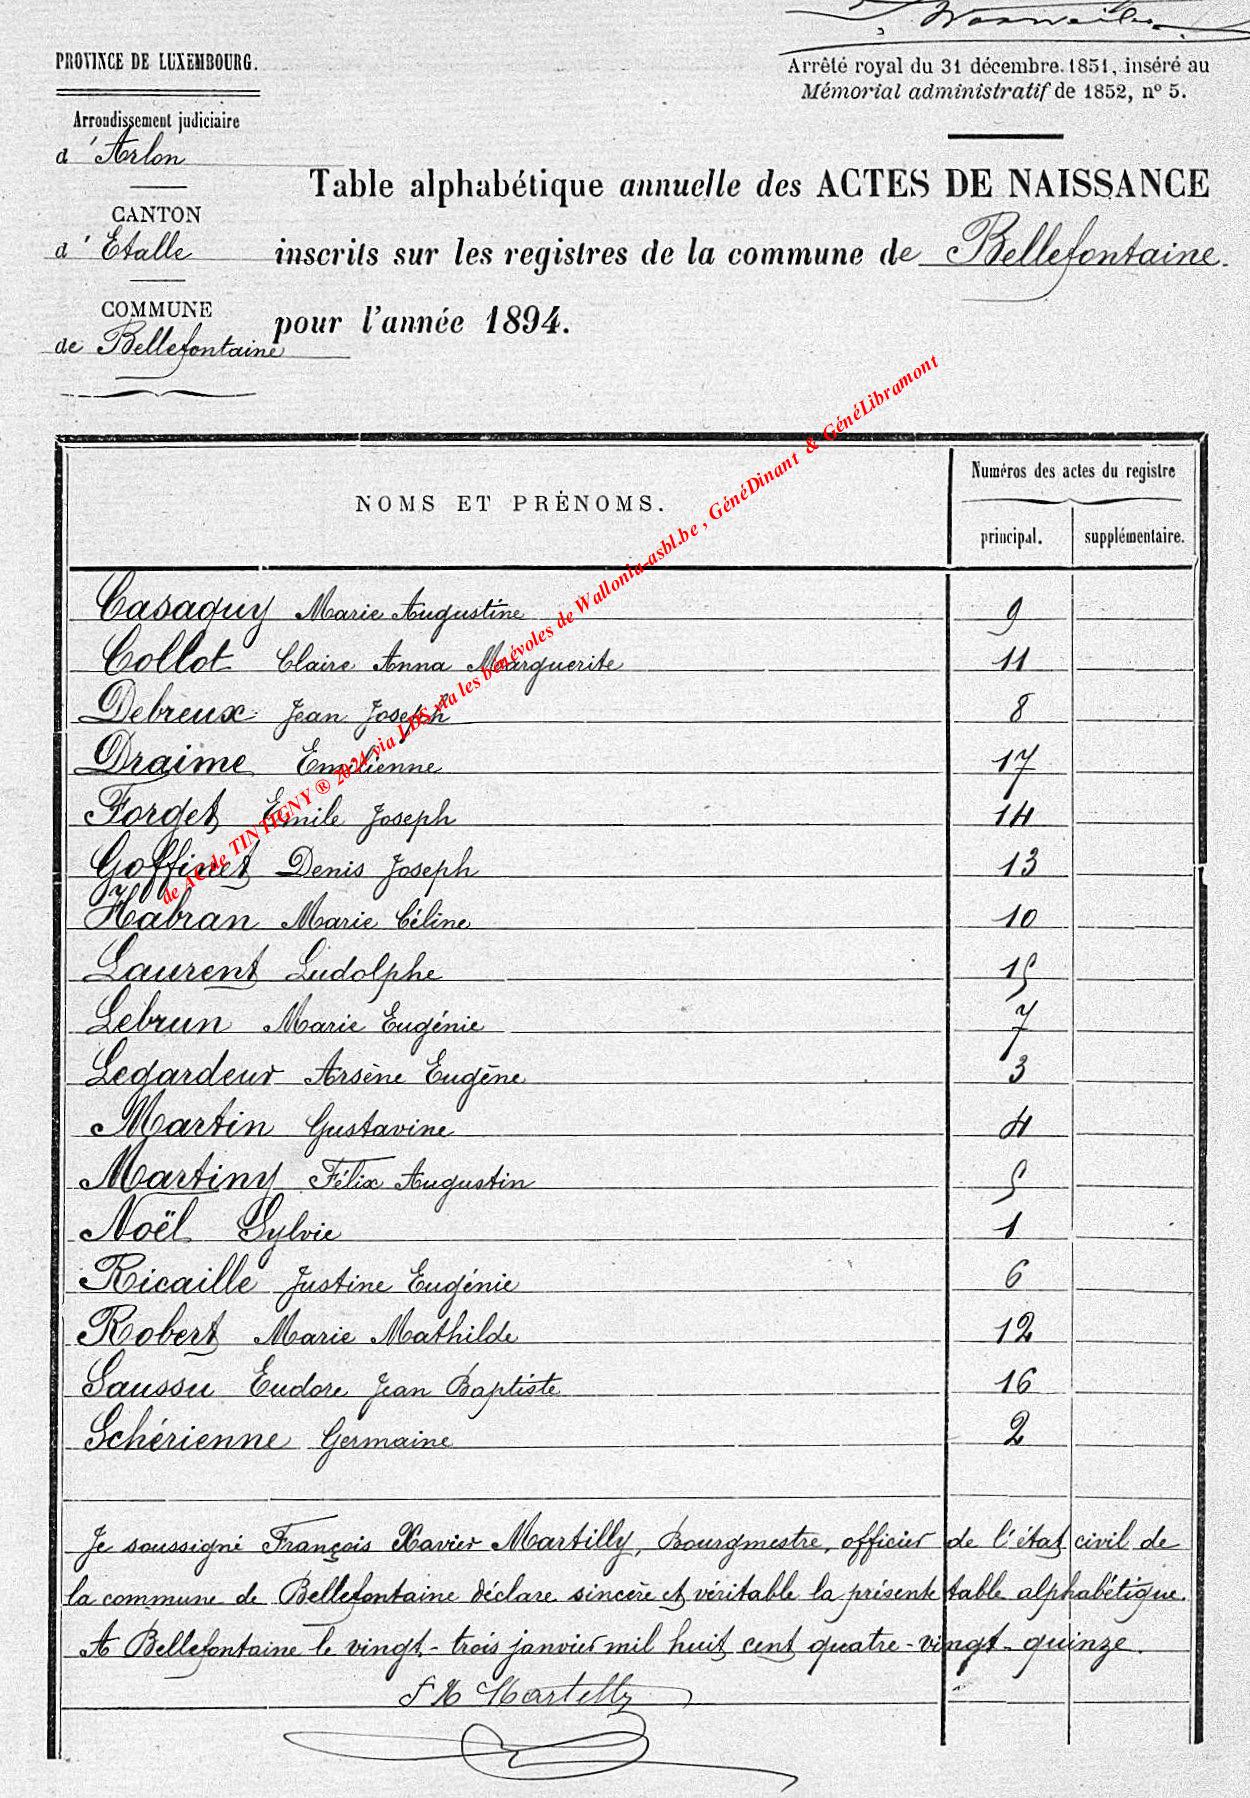 PROVINCE DE LUXEMBOURG.
Arrêté royal du 31 décembre 1851, inséré au
Mémorial administratif de 1852, nº 5.
Arrondissement judiciaire
d'Arlon
CANTON
d'Etalle
COMMUNE
de Bellefontaine
Table alphabétique annuelle des ACTES DE NAISSANCE
inscrits sur les registres de la commune de Bellefontaine.
pour l'année 1894.
NOMS ET PRÉNOMS.
Numéros des actes du registre
principal. supplémentaire.
Casaquy Marie Augustine 9
Collot Claire Anna Marguerite 11
Debreux Jean Joseph 8
Draime Emilienne 17
Forget Emile Joseph 14
Goffinet Denis Joseph 13
Habran Marie Céline 10
Laurent Ludolphe 15
Lebrun Marie Eugénie 7
Legardeur Arsène Eugène 3
Martin Gustavine 4
Martiny Félix Augustin 5
Noël Sylvie 1
Ricaille Justine Eugénie 6
Robert Marie Mathilde 12
Saussu Eudore Jean Baptiste 16
Schérienne Germaine 2
Je soussigné François Xavier Martilly, Bourgmestre, officier de l'état civil de
la commune de Bellefontaine déclare sincère et véritable la présente table alphabétique.
A Bellefontaine le vingt-trois janvier mil huit cent quatre-vingt-quinze.
F X Martilly
de AC de TINTIGNY ® 2024 via LDS via les bénévoles de Wallonia-asbl.be , GénéDinant & GénéLibramont